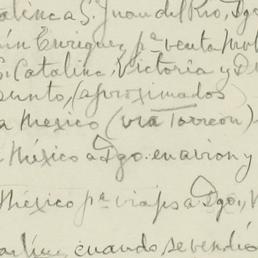 alinca a S. Juan del Rio, Dgo
Enriquez, pª venta
S. Catalina, Victoria y D
punto, (aproximados)
a Mexico (via Torreon)
México a Dgo. en avion y
México pª viajes a Dgo, y
cuando se vendió